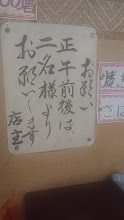 お願い
正午前後は、
二名様より
お願いします
店主